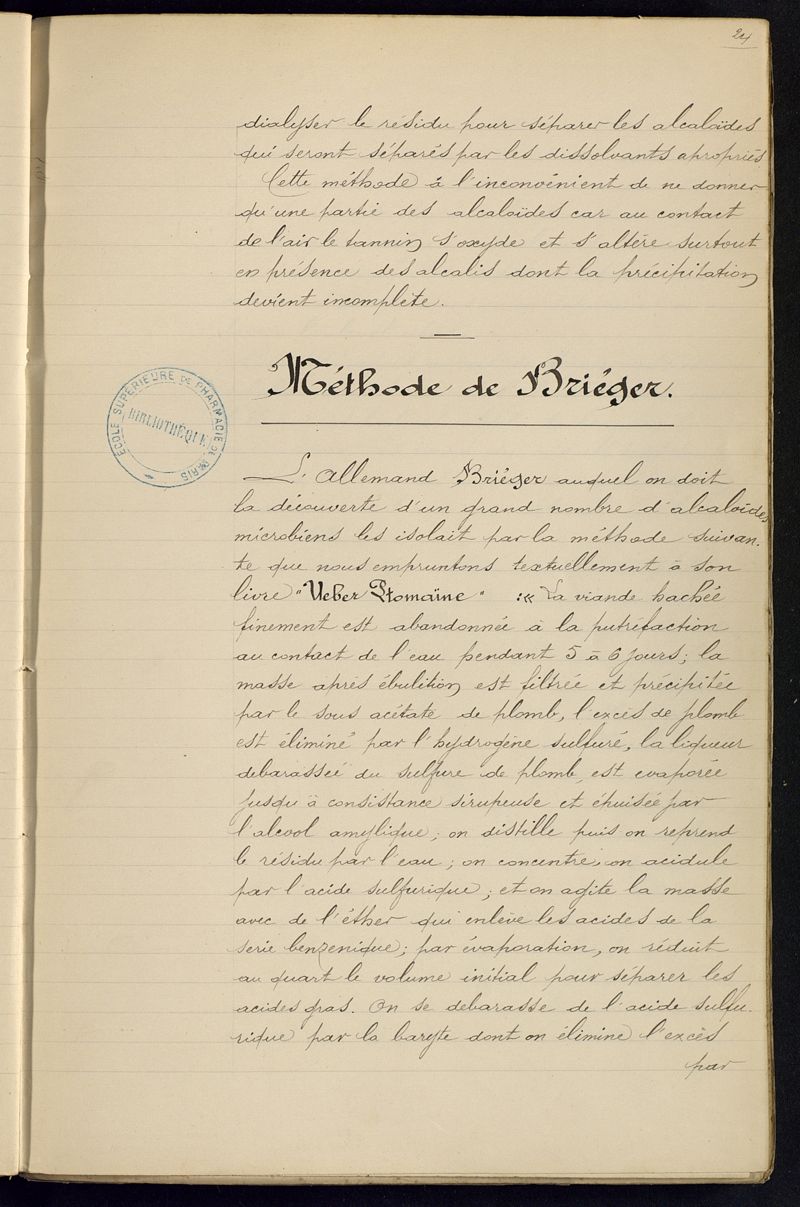 24
dialyser le résidu pour séparer les alcaloïdes
qui seront séparés par les dissolvants apropriés
Cette méthode à l'inconvénient de ne donner
qu'une partie des alcaloïdes car au contact
de l'air le tannin s'oxyde et s'altère surtout
en présence des alcalis dont la précipitation
devient incomplète.
Méthode de Briéger.
ÉCOLE SUPÉRIEURE DE PHARMACIE DE PARIS
BIBLIOTHÈQUE
L'Allemand Briéger auquel on doit
la découverte d'un grand nombre d'alcaloïdes
microbiens les isolait par la méthode suivan-
te que nous empruntons textuellement à son
livre "Ueber Ptomaïne" :« La viande hachée
finement est abandonnée à la putréfaction
au contact de l'eau pendant 5 à 6 jours; la
masse après ébulition est filtrée et précipitée
par le sous acétate de plomb, l'excès de plomb
est éliminé par l'hydrogène sulfuré, la liqueur
debarassée du sulfure de plomb est evaporée
jusqu'à consistance sirupeuse et épuisée par
l'alcool amylique; on distille puis on reprend
le résidu par l'eau; on concentre, on acidule
par l'acide sulfurique; et on agite la masse
avec de l'éther qui enlève les acides de la
serie benzenique; par évaporation, on réduit
au quart le volume initial pour séparer les
acides gras. On se debarasse de l'acide sulfu-
rique par la baryte dont on élimine l'excès
par